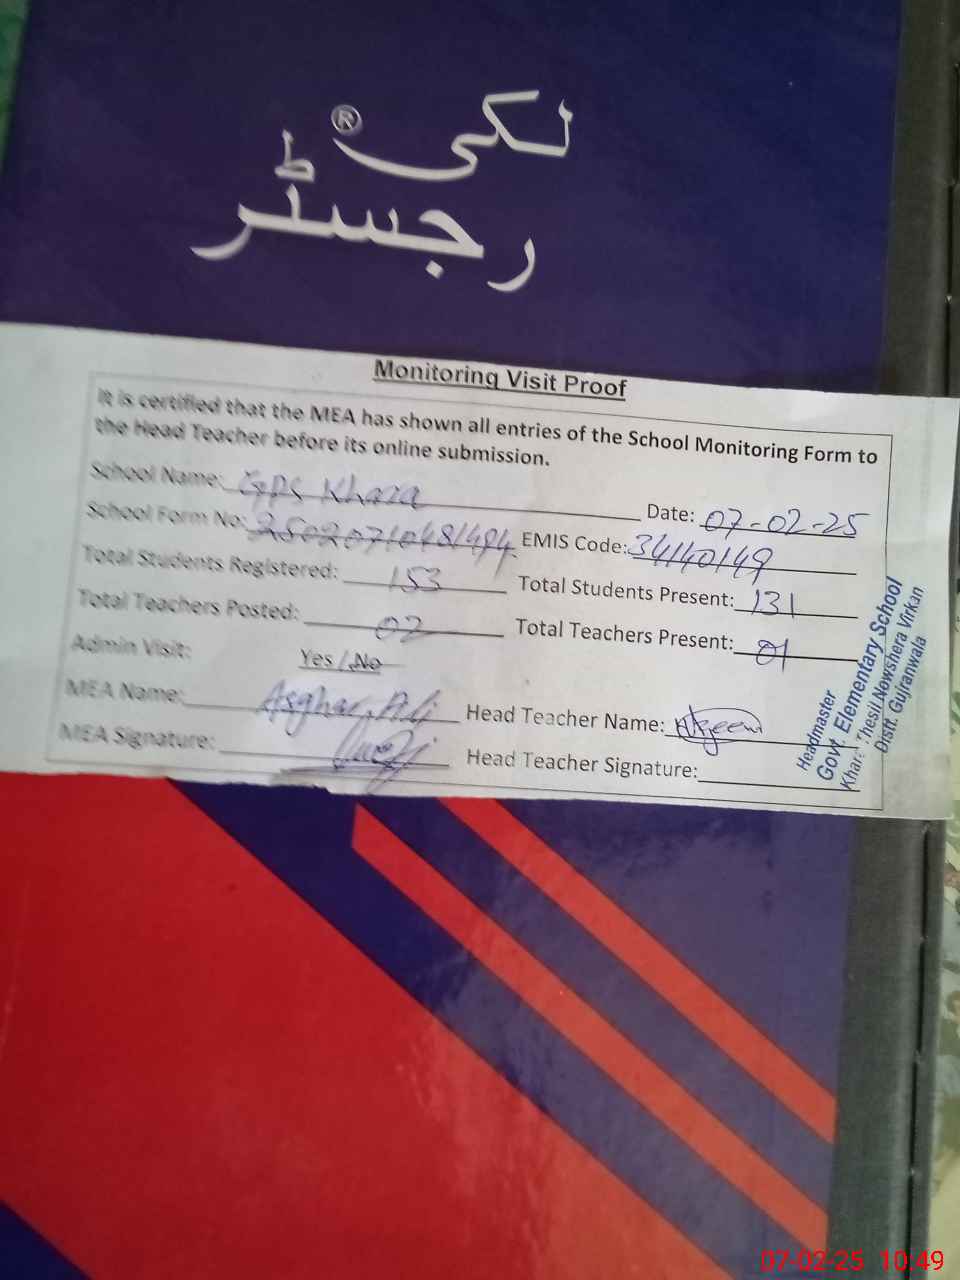 لکی®
رجسٹر
Monitoring Visit Proof
It is certified that the MEA has shown all entries of the School Monitoring Form to
the Head Teacher before its online submission.
School Name: GPS Khara Date: 07-02-25
School Form No: 25020710481494 EMIS Code: 34140149
Total Students Registered: 153 Total Students Present: 131
Total Teachers Posted: 02 Total Teachers Present: 01
Admin Visit: Yes / No
MEA Name: Asghar Ali Head Teacher Name:
MEA Signature: Head Teacher Signature:
Headmaster
Govt. Elementary School
Khara Thesil Nowshera Virkan
Distt. Gujranwala
07-02-25 10:49